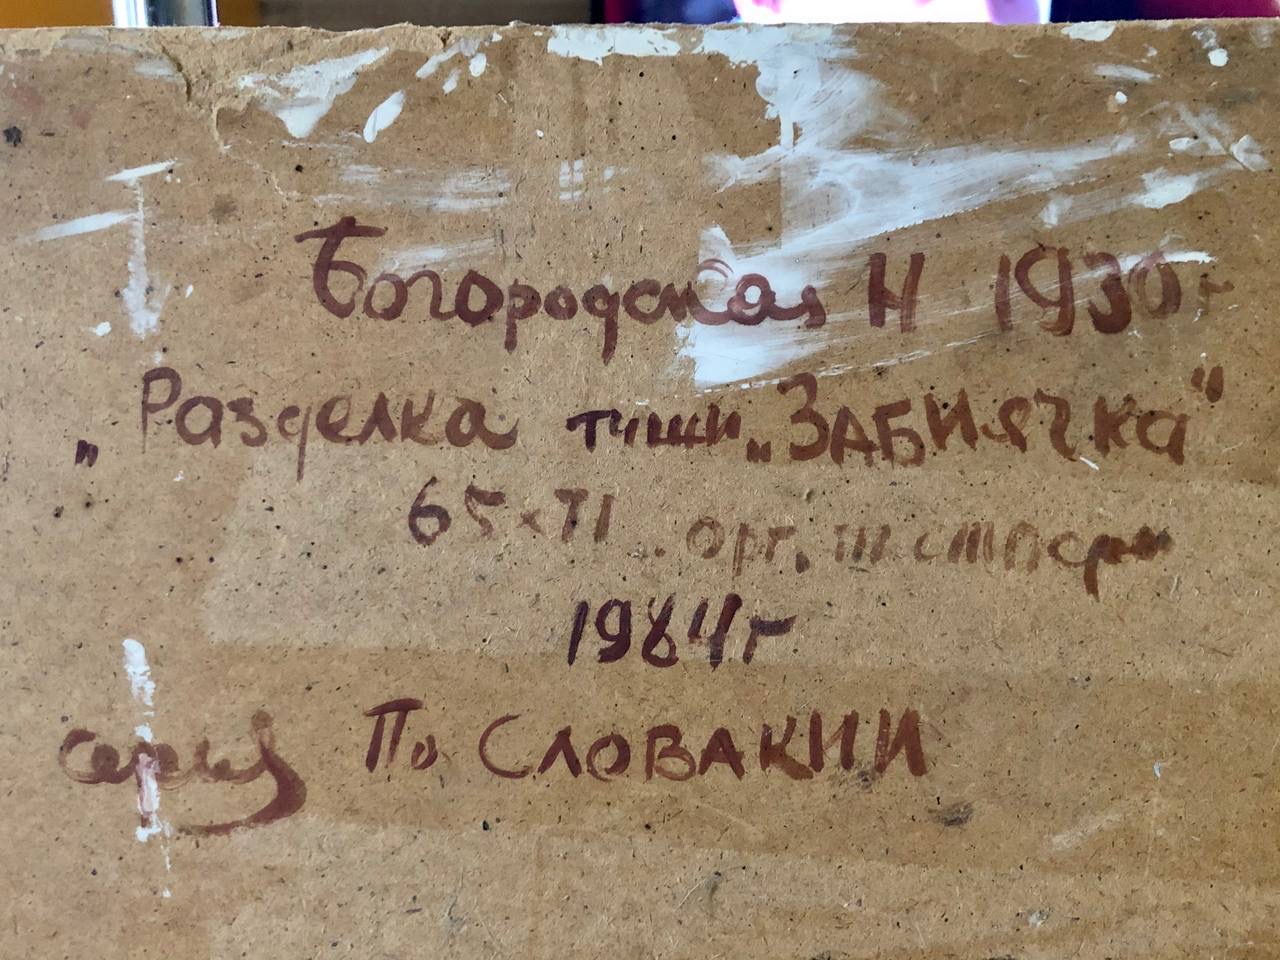 Богородская Н 1930 г
„Разделка туши „ЗАБИЯЧКА"
65×71. орг. темпера
1984г
серия По СЛОВАКИИ